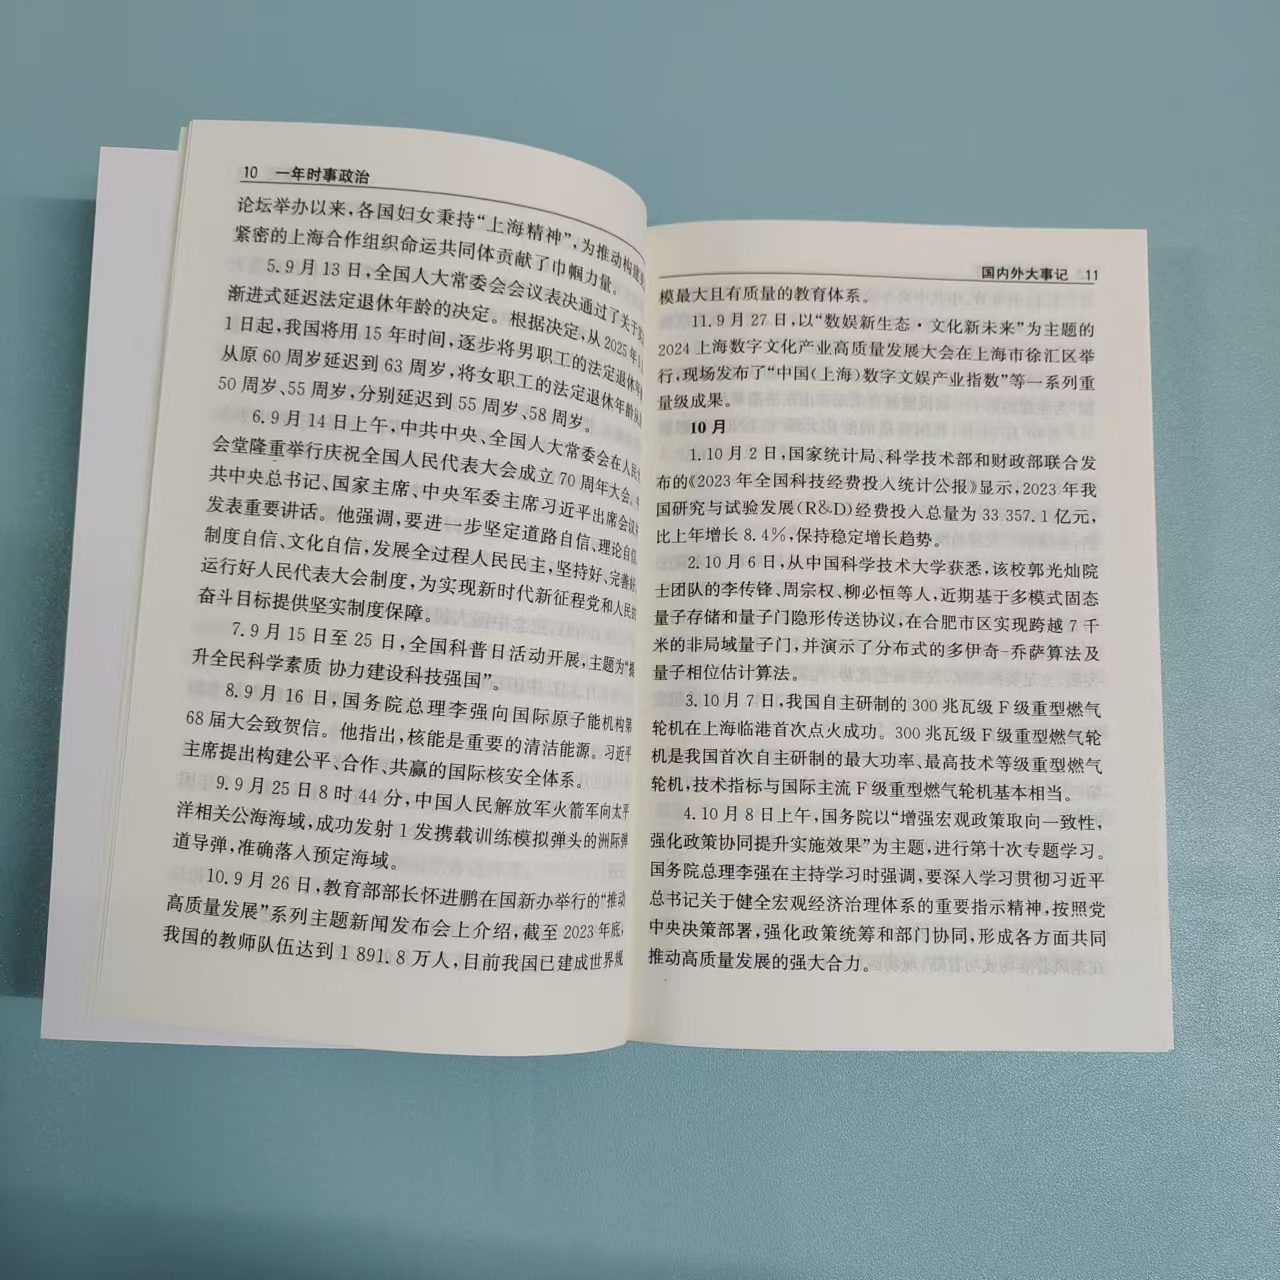 10 一年时事政治
论坛举办以来,各国妇女秉持“上海精神”,为推动构建
紧密的上海合作组织命运共同体贡献了巾帼力量。
5.9月13日,全国人大常委会会议表决通过了关于实
渐进式延迟法定退休年龄的决定。根据决定,从2025年
1日起,我国将用15年时间,逐步将男职工的法定退休年
从原60周岁延迟到63周岁,将女职工的法定退休年龄从
50周岁、55周岁,分别延迟到55周岁、58周岁。
6.9月14日上午,中共中央、全国人大常委会在人民
会堂隆重举行庆祝全国人民代表大会成立70周年大会。
共中央总书记、国家主席、中央军委主席习近平出席会议
发表重要讲话。他强调,要进一步坚定道路自信、理论自信
制度自信、文化自信,发展全过程人民民主,坚持好、完善好
运行好人民代表大会制度,为实现新时代新征程党和人民的
奋斗目标提供坚实制度保障。
7.9月15日至25日,全国科普日活动开展,主题为“提
升全民科学素质 协力建设科技强国”。
8.9月16日,国务院总理李强向国际原子能机构第
68届大会致贺信。他指出,核能是重要的清洁能源。习近平
主席提出构建公平、合作、共赢的国际核安全体系。
9.9月25日8时44分,中国人民解放军火箭军向太平
洋相关公海海域,成功发射1发携载训练模拟弹头的洲际弹
道导弹,准确落入预定海域。
10.9月26日,教育部部长怀进鹏在国新办举行的“推动
高质量发展”系列主题新闻发布会上介绍,截至2023年底,
我国的教师队伍达到1 891.8万人,目前我国已建成世界规
国内外大事记 11
模最大且有质量的教育体系。
11.9月27日,以“数娱新生态·文化新未来”为主题的
2024上海数字文化产业高质量发展大会在上海市徐汇区举
行,现场发布了“中国(上海)数字文娱产业指数”等一系列重
量级成果。
10月
1.10月2日,国家统计局、科学技术部和财政部联合发
布的《2023年全国科技经费投入统计公报》显示,2023年我
国研究与试验发展(R&D)经费投入总量为33 357.1亿元,
比上年增长8.4%,保持稳定增长趋势。
2.10月6日,从中国科学技术大学获悉,该校郭光灿院
士团队的李传锋、周宗权、柳必恒等人,近期基于多模式固态
量子存储和量子门隐形传送协议,在合肥市区实现跨越7千
米的非局域量子门,并演示了分布式的多伊奇-乔萨算法及
量子相位估计算法。
3.10月7日,我国自主研制的300兆瓦级F级重型燃气
轮机在上海临港首次点火成功。300兆瓦级F级重型燃气轮
机是我国首次自主研制的最大功率、最高技术等级重型燃气
轮机,技术指标与国际主流F级重型燃气轮机基本相当。
4.10月8日上午,国务院以“增强宏观政策取向一致性,
强化政策协同提升实施效果”为主题,进行第十次专题学习。
国务院总理李强在主持学习时强调,要深入学习贯彻习近平
总书记关于健全宏观经济治理体系的重要指示精神,按照党
中央决策部署,强化政策统筹和部门协同,形成各方面共同
推动高质量发展的强大合力。